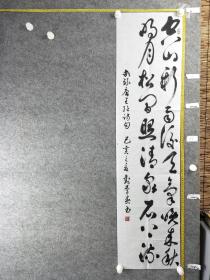 空山新雨後天氣晚来秋
明月松间照清泉石上流
唐王维诗句 己亥之夏 书